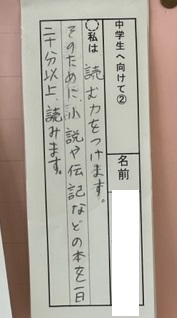 中学生へ向けて②
名前
○私は 読む力をつけます。
そのために、小説や伝記などの本を一日
二十分以上、読みます。